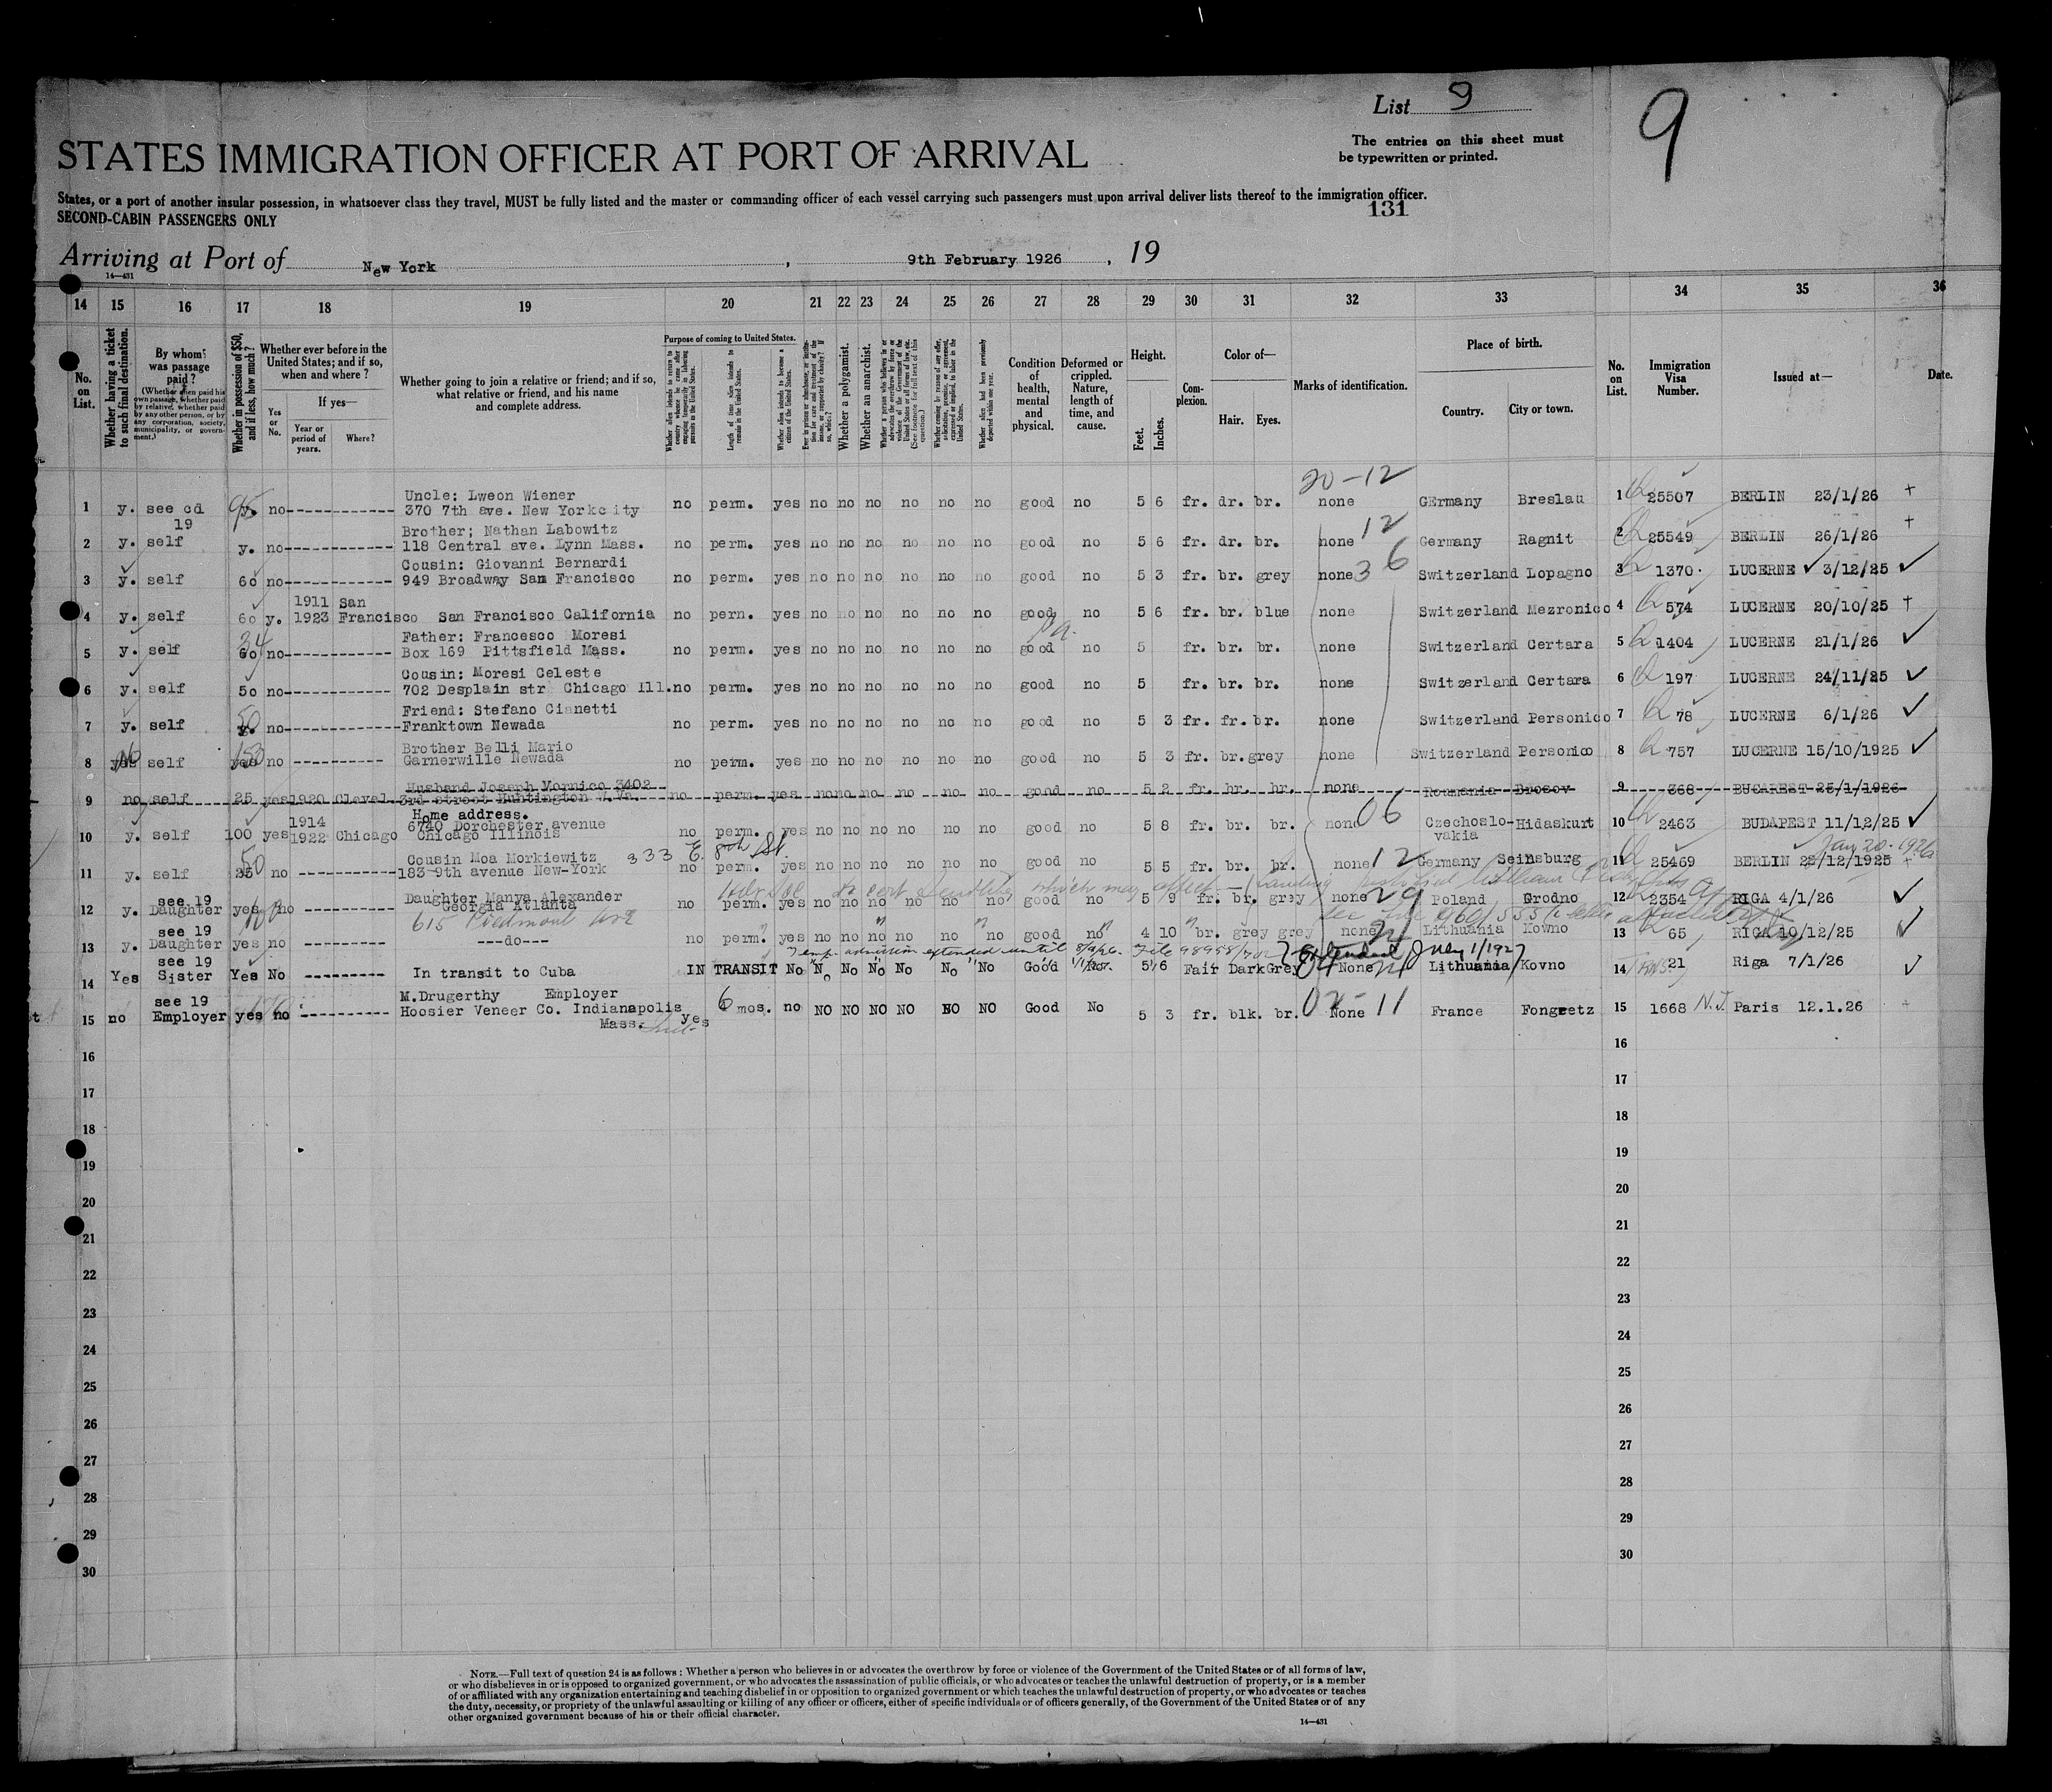 List 9
9
The entries on this sheet must
be typewritten or printed.
STATES IMMIGRATION OFFICER AT PORT OF ARRIVAL
States, or a port of another insular possession, in whatsoever class they travel, MUST be fully listed and the master or commanding officer of each vessel carrying such passengers must upon arrival deliver lists thereof to the immigration officer.
SECOND-CABIN PASSENGERS ONLY
131
Arriving at Port of New York, 9th February 1926, 19
14—431
14 15 16 17 18 19 20 21 22 23 24 25 26 27 28 29 30 31 32 33 34 35 36
No. on List.
Whether having a ticket to such final destination.
By whom was passage paid?
(Whether alien paid his own passage, whether paid by relative, whether paid by any other person, or by any corporation, society, municipality, or government.)
Whether in possession of $50, and if less, how much?
Whether ever before in the United States; and if so, when and where?
Yes or No.
If yes—
Year or period of years.
Where?
Whether going to join a relative or friend; and if so, what relative or friend, and his name and complete address.
Purpose of coming to United States.
Whether alien intends to return to country whence he came after engaging temporarily in laboring pursuits in the United States.
Length of time alien intends to remain in the United States.
Whether alien intends to become a citizen of the United States.
Whether a polygamist.
Whether an anarchist.
Condition of health, mental and physical.
Deformed or crippled. Nature, length of time, and cause.
Height.
Feet. Inches.
Complexion.
Color of—
Hair. Eyes.
Marks of identification.
Place of birth.
Country. City or town.
No. on List.
Immigration Visa Number.
Issued at—
Date.
20-12
1 y. see cd 19 no Uncle: Lweon Wiener 370 7th ave. New Yorkc ity no perm. yes no no no no no no good no 5 6 fr. dr. br. none GErmany Breslau 1 25507 BERLIN 23/1/26
2 y. self y. no Brother; Nathan Labowitz 118 Central ave. Lynn Mass. no perm. yes no no no no no no good no 5 6 fr. dr. br. none 12 Germany Ragnit 2 25549 BERLIN 26/1/26
3 y. self 60 no Cousin: Giovanni Bernardi 949 Broadway San Francisco no perm. yes no no no no no no good no 5 3 fr. br. grey none 36 Switzerland Lopagno 3 1370 LUCERNE 3/12/25
4 y. self 60 y. 1911 1923 San Francisco San Francisco California no pern. yes no no no no no no good no 5 6 fr. br. blue none Switzerland Mezronico 4 574 LUCERNE 20/10/25
5 y. self 60 34 no Father: Francesco Moresi Box 169 Pittsfield Mass. no perm. yes no no no no no no good no 5 fr. br. br. none Switzerland Certara 5 1404 LUCERNE 21/1/26
6 y. self 50 no Cousin: Moresi Celeste 702 Desplain str Chicago Ill. no perm. yes no no no no no no good no 5 fr. br. br. none Switzerland Certara 6 197 LUCERNE 24/11/25
7 y. self 50 no Friend: Stefano Cianetti Franktown Newada no perm. yes no no no no no no good no 5 3 fr. fr. br. none Switzerland Personico 7 78 LUCERNE 6/1/26
8 yes No self yes 150 no Brother Belli Mario Garnerwille Newada no perm. yes no no no no no no good no 5 3 fr. br. grey none Switzerland Personico 8 757 LUCERNE 15/10/1925
9 no self 25 yes 1920 Clevel. Husband Joseph Mornico 3402 3rd street Huntington W.Va. no perm. yes no no no no no no good no 5 2 fr. br. br. none Roumania Brosov 9 368 BUCAREST 25/1/1926
10 y. self 100 yes 1914 1922 Chicago Home address. 6740 Dorchester avenue Chicago Illinois no perm. yes no no no no no no good no 5 8 fr. br. br. none 06 Czechoslovakia Hidaskurt 10 2463 BUDAPEST 11/12/25
333 E. 8th St.
Jan 20-1926
11 y. self 25 50 no Cousin Moa Morkiewitz 183 9th avenue New-York no perm. yes no no no no no no good no 5 5 fr. br. br. none 12 Germany Seinsburg 11 25469 BERLIN 22/12/1925
12 y. see 19 Daughter yes no Daughter Manya Alexander Georgia Atlanta no perm. yes no no no no no no good no 5 9 fr. br. grey none 29 Poland Grodno 12 2354 RIGA 4/1/26
615 Piedmont Ave
13 y. see 19 Daughter yes no ---do--- no perm. yes no no no no no no good no 4 10 br. grey grey none Lithuania Kowno 13 65 RIGA 10/12/25
Temp. admission extended until 8/9/26. File 98958/702 Extended July 1/1927
14 Yes see 19 Sister Yes No In transit to Cuba IN TRANSIT No No No No No No No Good No. 5 6 Fair Dark Grey None Lithuania Kovno 14 21 Riga 7/1/26
15 no see 19 Employer yes no M.Drugerthy Employer Hoosier Veneer Co. Indianapolis Mass. Ind. yes 6 mos. no NO NO NO NO NO NO Good No 5 3 fr. blk. br. 02-11 None France Fongretz 15 1668 N.J. Paris 12.1.26
16 16
17 17
18 18
19 19
20 20
21 21
22 22
23 23
24 24
25 25
26 26
27 27
28 28
29 29
30 30
NOTE.—Full text of question 24 is as follows: Whether a person who believes in or advocates the overthrow by force or violence of the Government of the United States or of all forms of law,
or who disbelieves in or is opposed to organized government, or who advocates the assassination of public officials, or who advocates or teaches the unlawful destruction of property, or is a member
of or affiliated with any organization entertaining and teaching disbelief in or opposition to organized government or which teaches the unlawful destruction of property, or who advocates or teaches
the duty, necessity, or propriety of the unlawful assaulting or killing of any officer or officers, either of specific individuals or of officers generally, of the Government of the United States or of any
other organized government because of his or their official character.
14—431